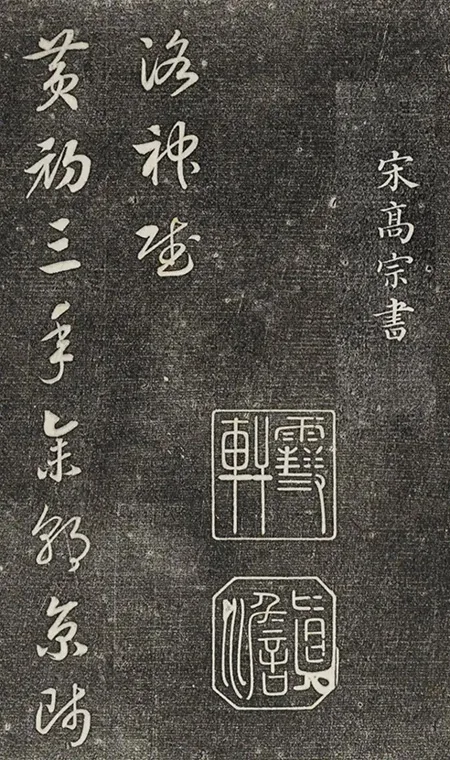 宋高宗書
洛神賦
黃初三年余朝京師